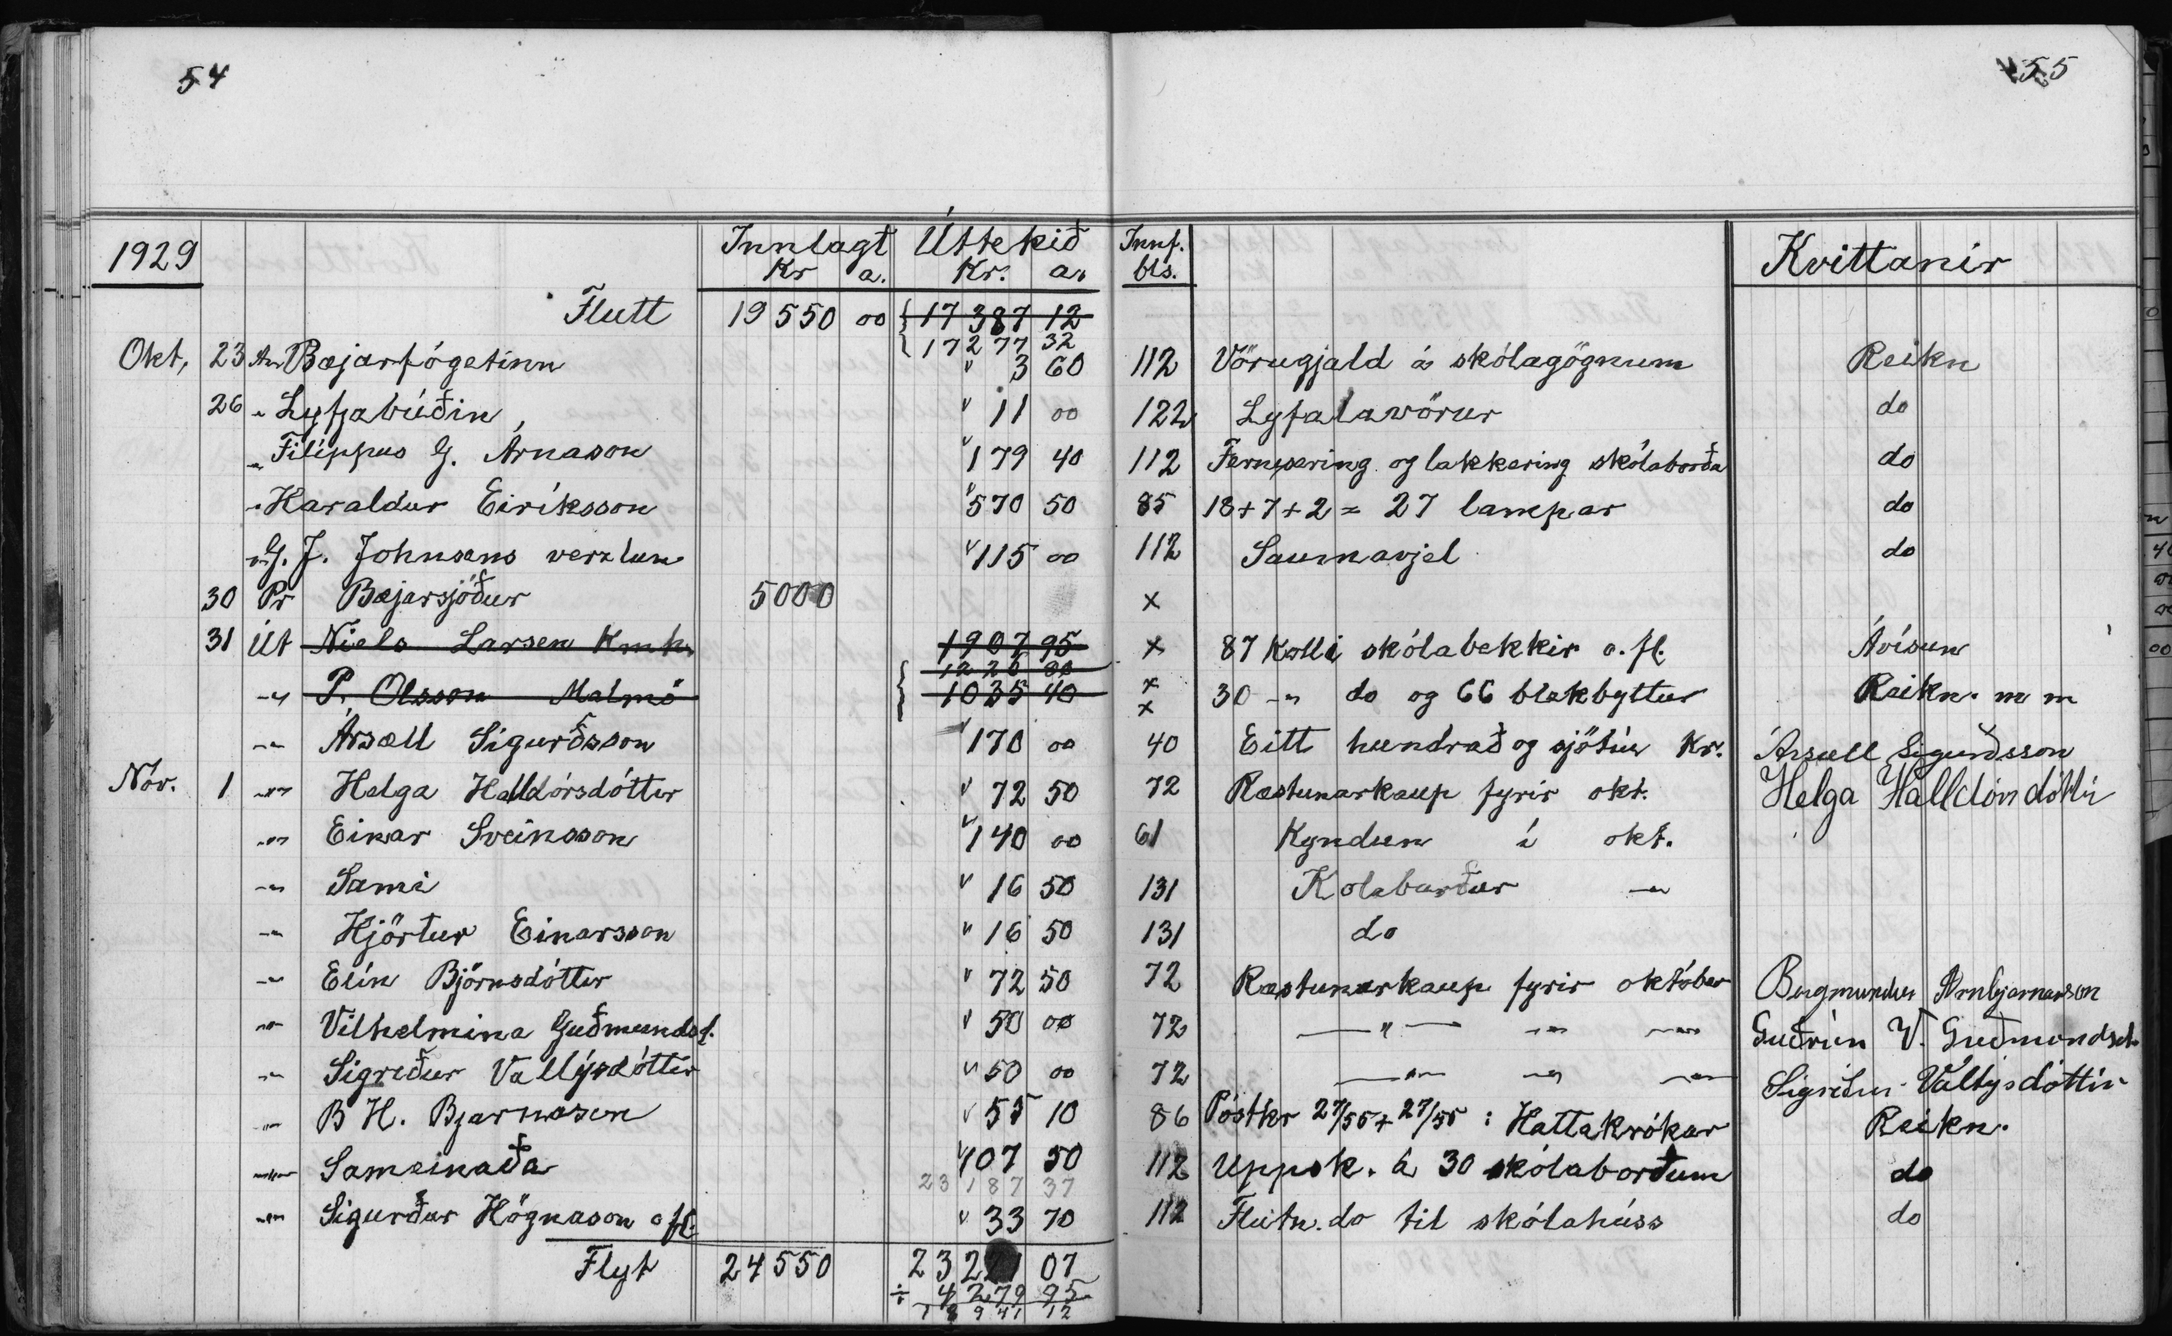 54
55
1929 Innlagt Úttekið Innf. Kvittanir
Kr a. Kr. a. bls.
Flutt 19 550 00 17 387 12
17 277 32
Okt, 23 Bæjarfógetinn " 3 60 112 Vörugjald á skólagögnum Reikn
26 " Lyfjabúðin " 11 00 122 Lyfalavörur do
" Filippus G. Árnason " 179 40 112 Fernisering og lakkering skólaborða do
" Haraldur Eiríksson " 570 50 85 18+7+2 = 27 lampar do
" G. J. Johnsens verzlun " 115 00 112 Saumavjel do
30 Pr Bæjarsjóður 5000 x
31 Út Niels Larsen Kmh. 1907 95 x 87 Kolli skólabekkir o. fl. Ávísun
1220 80
-"- P. Olsson Malmö 1035 40 x x 30 -"- do og 66 blekbyttur Reikn. m m
-"- Ársæll Sigurðsson " 170 00 40 Eitt hundrað og sjötíu Kr. Ársæll Sigurðsson
Nóv. 1 -"- Helga Halldórsdóttir " 72 50 72 Ræstunarkaup fyrir okt. Helga Halldórsdóttir
-"- Einar Sveinsson " 140 00 61 Kyndun í okt.
-"- Sami " 16 50 131 Kolaburður -"-
-"- Hjörtur Einarsson " 16 50 131 do
-"- Elín Björnsdóttir " 72 50 72 Ræstunarkaup fyrir október Bergmundur Arnbjarnarson
-"- Vilhelmina Guðmundsd. " 50 00 72 -"- -"- -"- Guðrún V. Guðmundsd.
-"- Sigríður Valtýsdóttir " 50 00 72 -"- -"- -"- Sigríður Valtýsdóttir
-"- B H. Bjarnason " 55 10 86 Póstkr 27/55+27/55 : Hattakrókar Reikn.
-"- Sameinaða " 107 50 112 Uppsk. á 30 skólaborðum do
23 187 37
-"- Sigurður Högnason o fl. " 33 70 112 Flutn. do til skólahúss do
Flyt 24550 23221 07
÷ 4 279 95
18 941 12